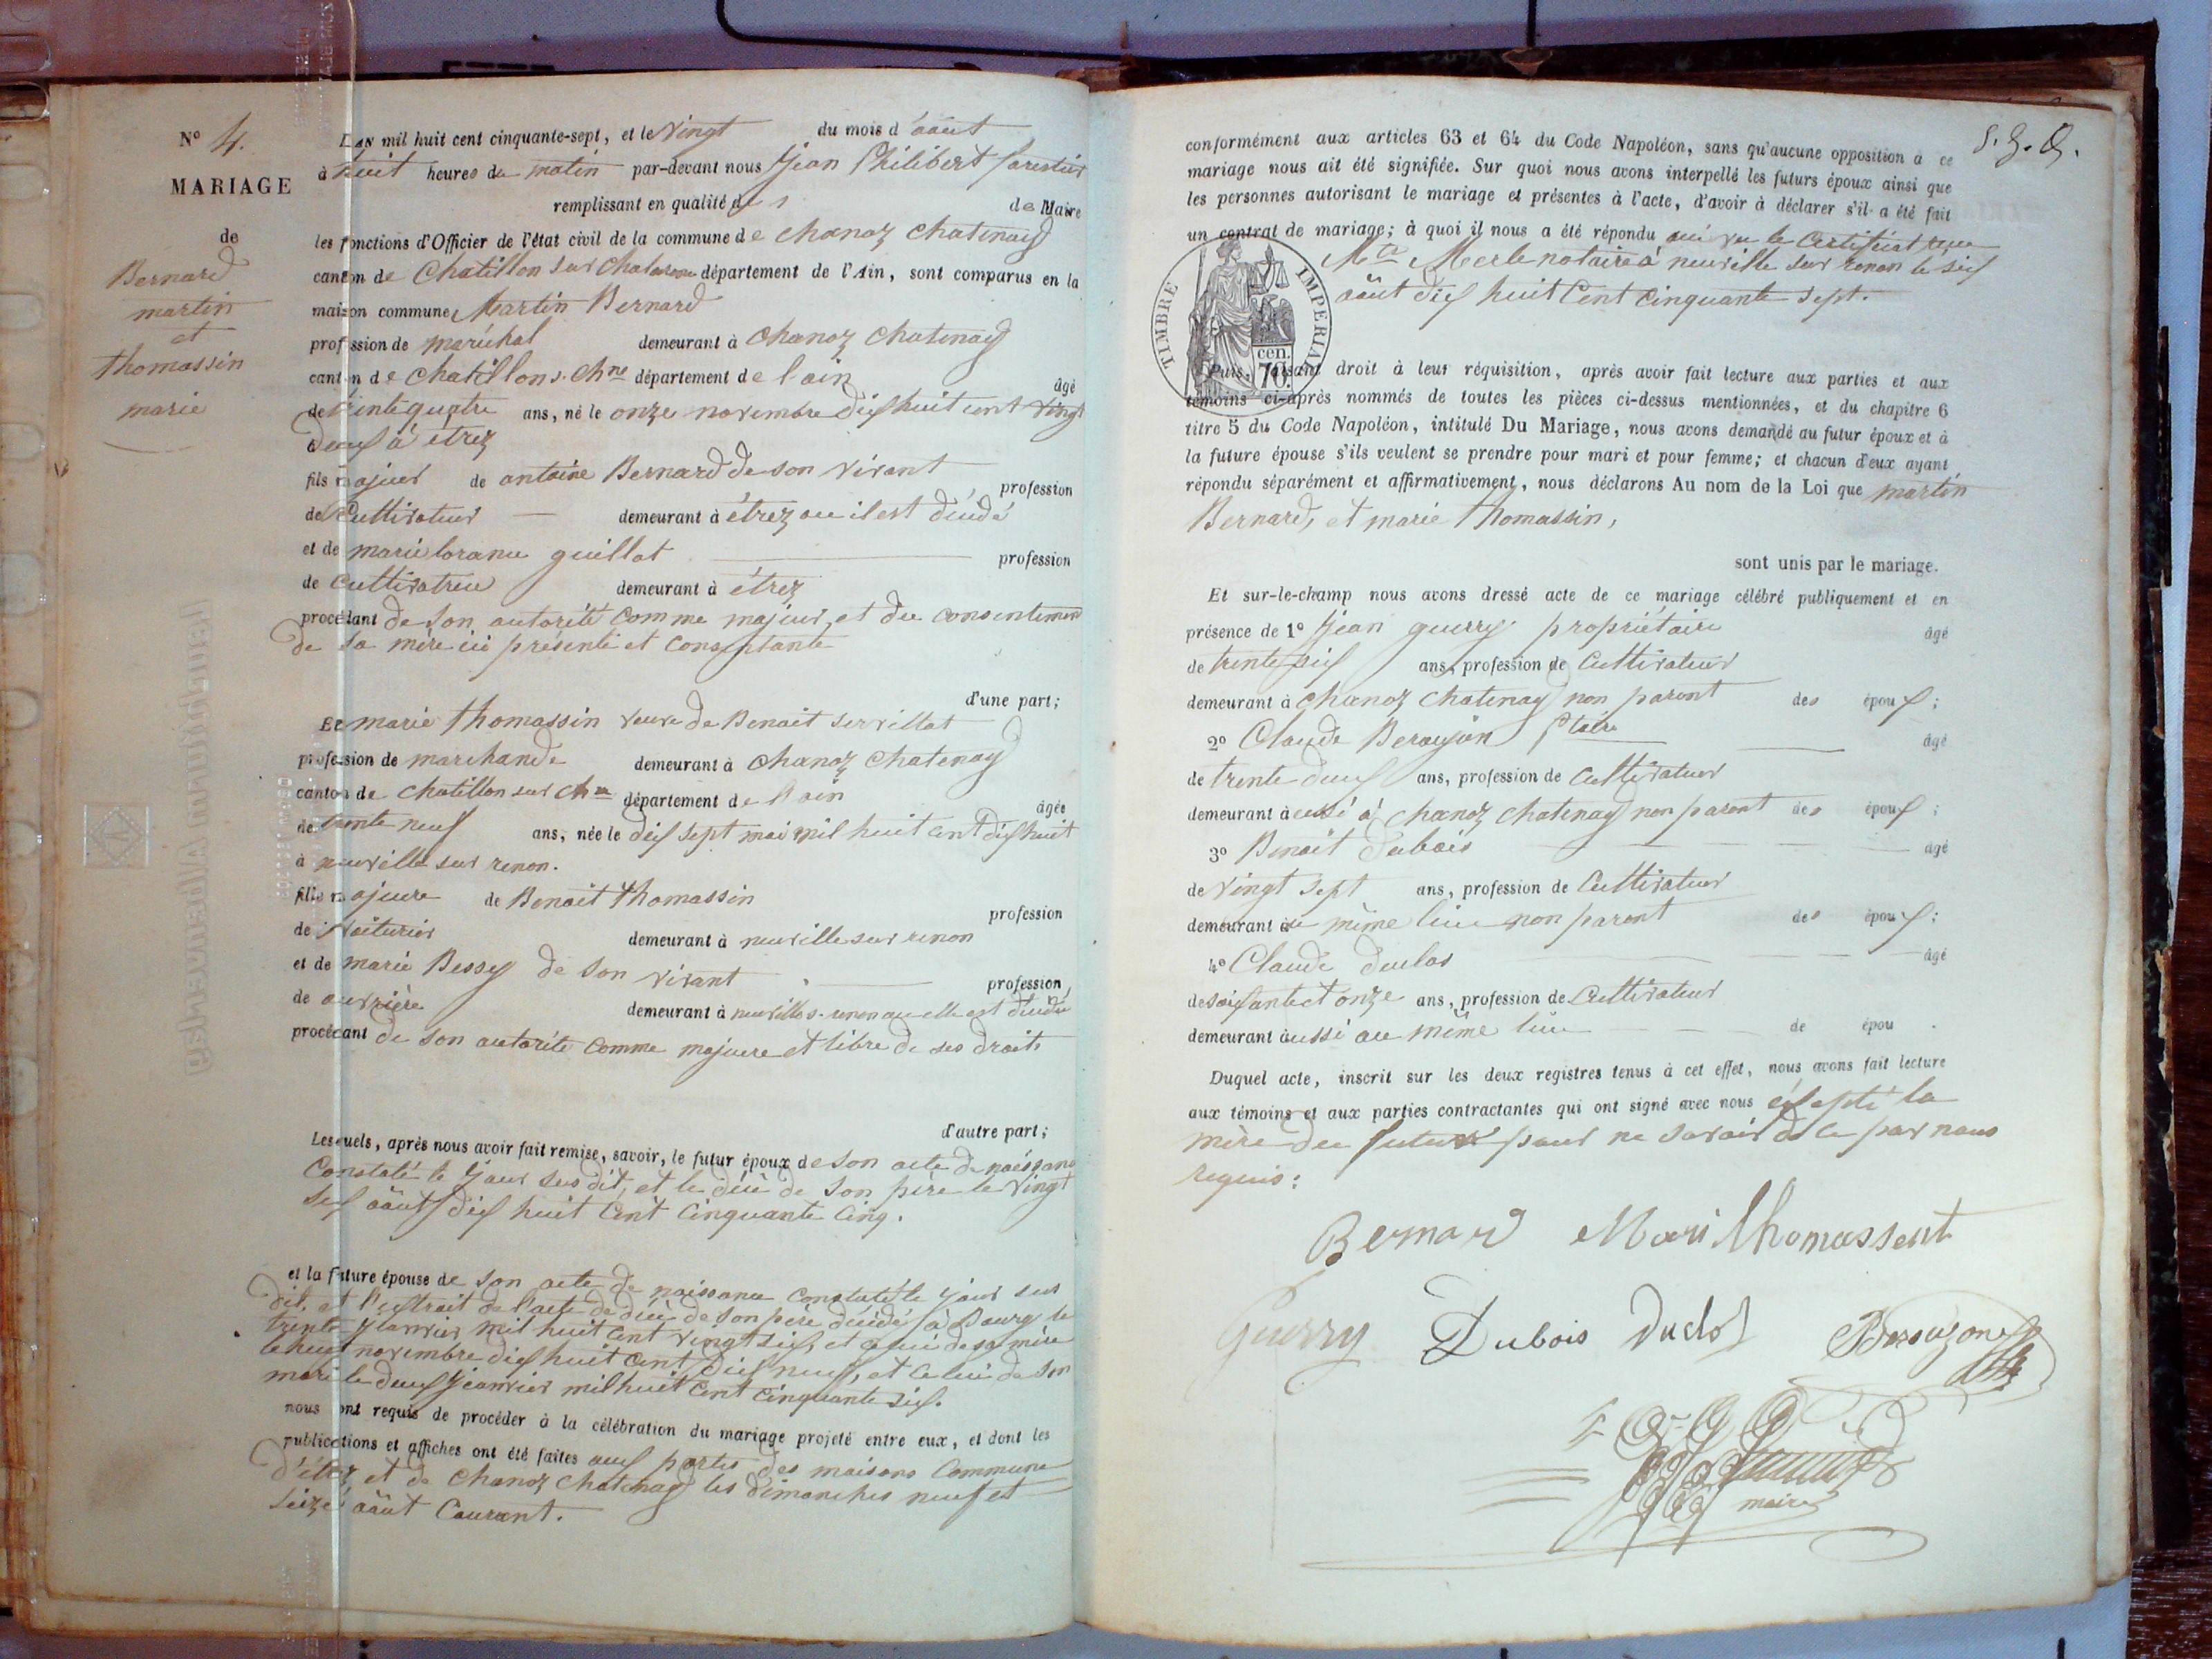 N° 4.
MARIAGE
de
Bernard
martin
et
thomassin
marie
L'AN mil huit cent cinquante-sept, et le Vingt du mois d'août
à huit heures du matin par-devant nous Jean Philibert
remplissant en qualité de de Maire
les fonctions d'Officier de l'état civil de la commune de chanoz chatenay
canton de Chatillon sur chalaronne département de l'Ain, sont comparus en la
maison commune Martin Bernard
profession de maréchal demeurant à Chanoz Chatenay
canton de Chatillon s. Chne département de l'ain âgé
de trente quatre ans, né le onze novembre dix huit cent vingt
deux à étrez
fils majeur de antoine Bernard de son vivant profession
de Cultivateur demeurant à étrez ou il est décédé
et de marie guillot profession
de Cultivatrice demeurant à étrez
procédant de son autorité comme majeur, et du consentement
de sa mère ici présente et consentante
d'une part;
Et marie thomassin veuve de Benoit servillat
profession de marchande demeurant à chanoz Chatenay
canton de chatillon sur chne département de l'ain âgée
de trente neuf ans, née le dix sept mai mil huit cent dix huit
à neuville sur renon.
fille majeure de Benoit thomassin profession
de voiturier demeurant à neuville sur renon
et de marie Bessy de son vivant profession
de ouvrière demeurant à neuville s. renon ou elle est décédée
procédant de son autorité comme majeure et libre de ses droits
d'autre part;
Lesquels, après nous avoir fait remise, savoir, le futur époux de son acte de naissance
Constaté le jour sus dit, et le décè de son père le vingt
six août dix huit Cent Cinquante Cinq.
et la future épouse de son acte de naissance constaté le jour sus
dit, et l'extrait de l'acte de décè de son père décédé à Bourg le
trente janvier mil huit cent vingt six, et celui de sa mère
le huit novembre dix huit cent dix neuf, et celui de son
mari le deux janvier mil huit cent cinquante six.
nous ont requis de procéder à la célébration du mariage projeté entre eux, et dont les
publications et affiches ont été faites aux portes des maisons Commune
d'étrez et de Chanoz Chatenay les dimanches neuf et
seize août Courant.
conformément aux articles 63 et 64 du Code Napoléon, sans qu'aucune opposition à ce
mariage nous ait été signifiée. Sur quoi nous avons interpellé les futurs époux ainsi que
les personnes autorisant le mariage et présentes à l'acte, d'avoir à déclarer s'il a été fait
un contrat de mariage; à quoi il nous a été répondu oui vu le Certificat reçu
Mte Merle notaire à neuville sur renon le six
août dix huit Cent Cinquante sept.
TIMBRE IMPERIAL
cen.
70.
Puis, faisant droit à leur réquisition, après avoir fait lecture aux parties et aux
témoins ci-après nommés de toutes les pièces ci-dessus mentionnées, et du chapitre 6
titre 5 du Code Napoléon, intitulé Du Mariage, nous avons demandé au futur époux et à
la future épouse s'ils veulent se prendre pour mari et pour femme; et chacun d'eux ayant
répondu séparément et affirmativement, nous déclarons Au nom de la Loi que martin
Bernard, et marie thomassin,
sont unis par le mariage.
Et sur-le-champ nous avons dressé acte de ce mariage célébré publiquement et en
présence de 1° Jean guerry propriétaire âgé
de trente six ans, profession de Cultivateur
demeurant à chanoz chatenay non parent des époux;
2° Claude Beroujon ptaire âgé
de trente deux ans, profession de Cultivateur
demeurant aussi à chanoz chatenay non parent des époux;
3° Benoit Dubois âgé
de vingt sept ans, profession de Cultivateur
demeurant au même lieu non parent des époux;
4° Claude duclos âgé
de soixante et onze ans, profession de Cultivateur
demeurant aussi au même lieu de épou .
Duquel acte, inscrit sur les deux registres tenus à cet effet, nous avons fait lecture
aux témoins et aux parties contractantes qui ont signé avec nous éxepté la
mère du futur pour ne savoir de ce par nous
requis:
Bernard Mari thomassent
Guerry Dubois Duclos
maire